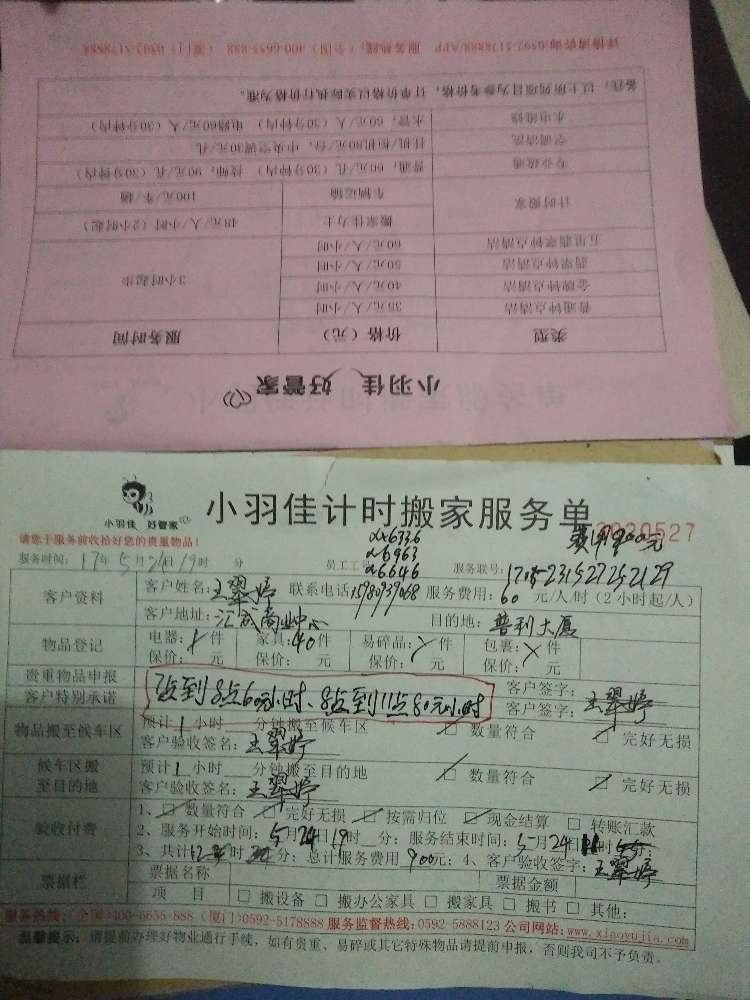 小羽佳 好管家
类型 价格（元） 服务时间
普通钟点清洁 35元/人/小时 3小时起步
金牌钟点清洁 40元/人/小时
翡翠钟点清洁 50元/人/小时
五星翡翠钟点清洁 60元/人/小时
计时搬家 搬家佳力士 48元/人/小时（2小时起）
车辆运输 100元/车/趟
专业疏通 普通，60元/孔（30分钟内） 技师，90元/孔（30分钟内）
空调清洗 挂机/柜机80元/台，中央空调30元/孔
水电维修 水管，60元/人（30分钟内） 电路60元/人（30分钟内）
备注：以上所列项目为参考价格，订单价格以实际执行价格为准。
详情请咨询:0592-5178888/APP 服务热线:（全国）400-6655-888 （厦门）0592-5178888
小羽佳 好管家
小羽佳计时搬家服务单
2020527
请您于服务前收拾好您的贵重物品！
费用900元
服务时间：17年5月24日19时 分 员工工号 6336 6963 6646 服务联号：
客户资料 客户姓名：王翠婷 联系电话15980939068 服务费用：60 元/人/时（2小时起/人）
客户地址：汇成商业中心 目的地：普利大厦
物品登记 电器： 件 家具：40件 易碎品： 件 包裹： 件
保价： 元 保价： 元 保价： 元 保价： 元
贵重物品申报 客户签字：
客户特别承诺 7点到8点60元/小时、8点到11点80元/小时 客户签字：王翠婷
物品搬至候车区 预计1小时 分钟搬至候车区 数量符合 完好无损
客户验收签名：王翠婷
候车区搬至目的地 预计1小时 分钟搬至目的地 数量符合 完好无损
客户验收签名：王翠婷
验收付费 1、数量符合 完好无损 按需归位 现金结算 转账汇款
2、服务开始时间：5月24日19时 分；服务结束时间：5月24日 时 分；
3、共计12时 分；总计服务费用900元；4、客户验收签字：王翠婷
票据栏 票据名称 票据金额
项目 搬设备 搬办公家具 搬家具 搬书 其他：
服务热线：全国:400-6655-888（厦门）0592-5178888 服务监督热线：0592-5888123 公司网站：www.xiaoyujia.com
温馨提示：请提前办理好物业通行手续，如有贵重、易碎或其它特殊物品请提前申报，否则我司不予负责。